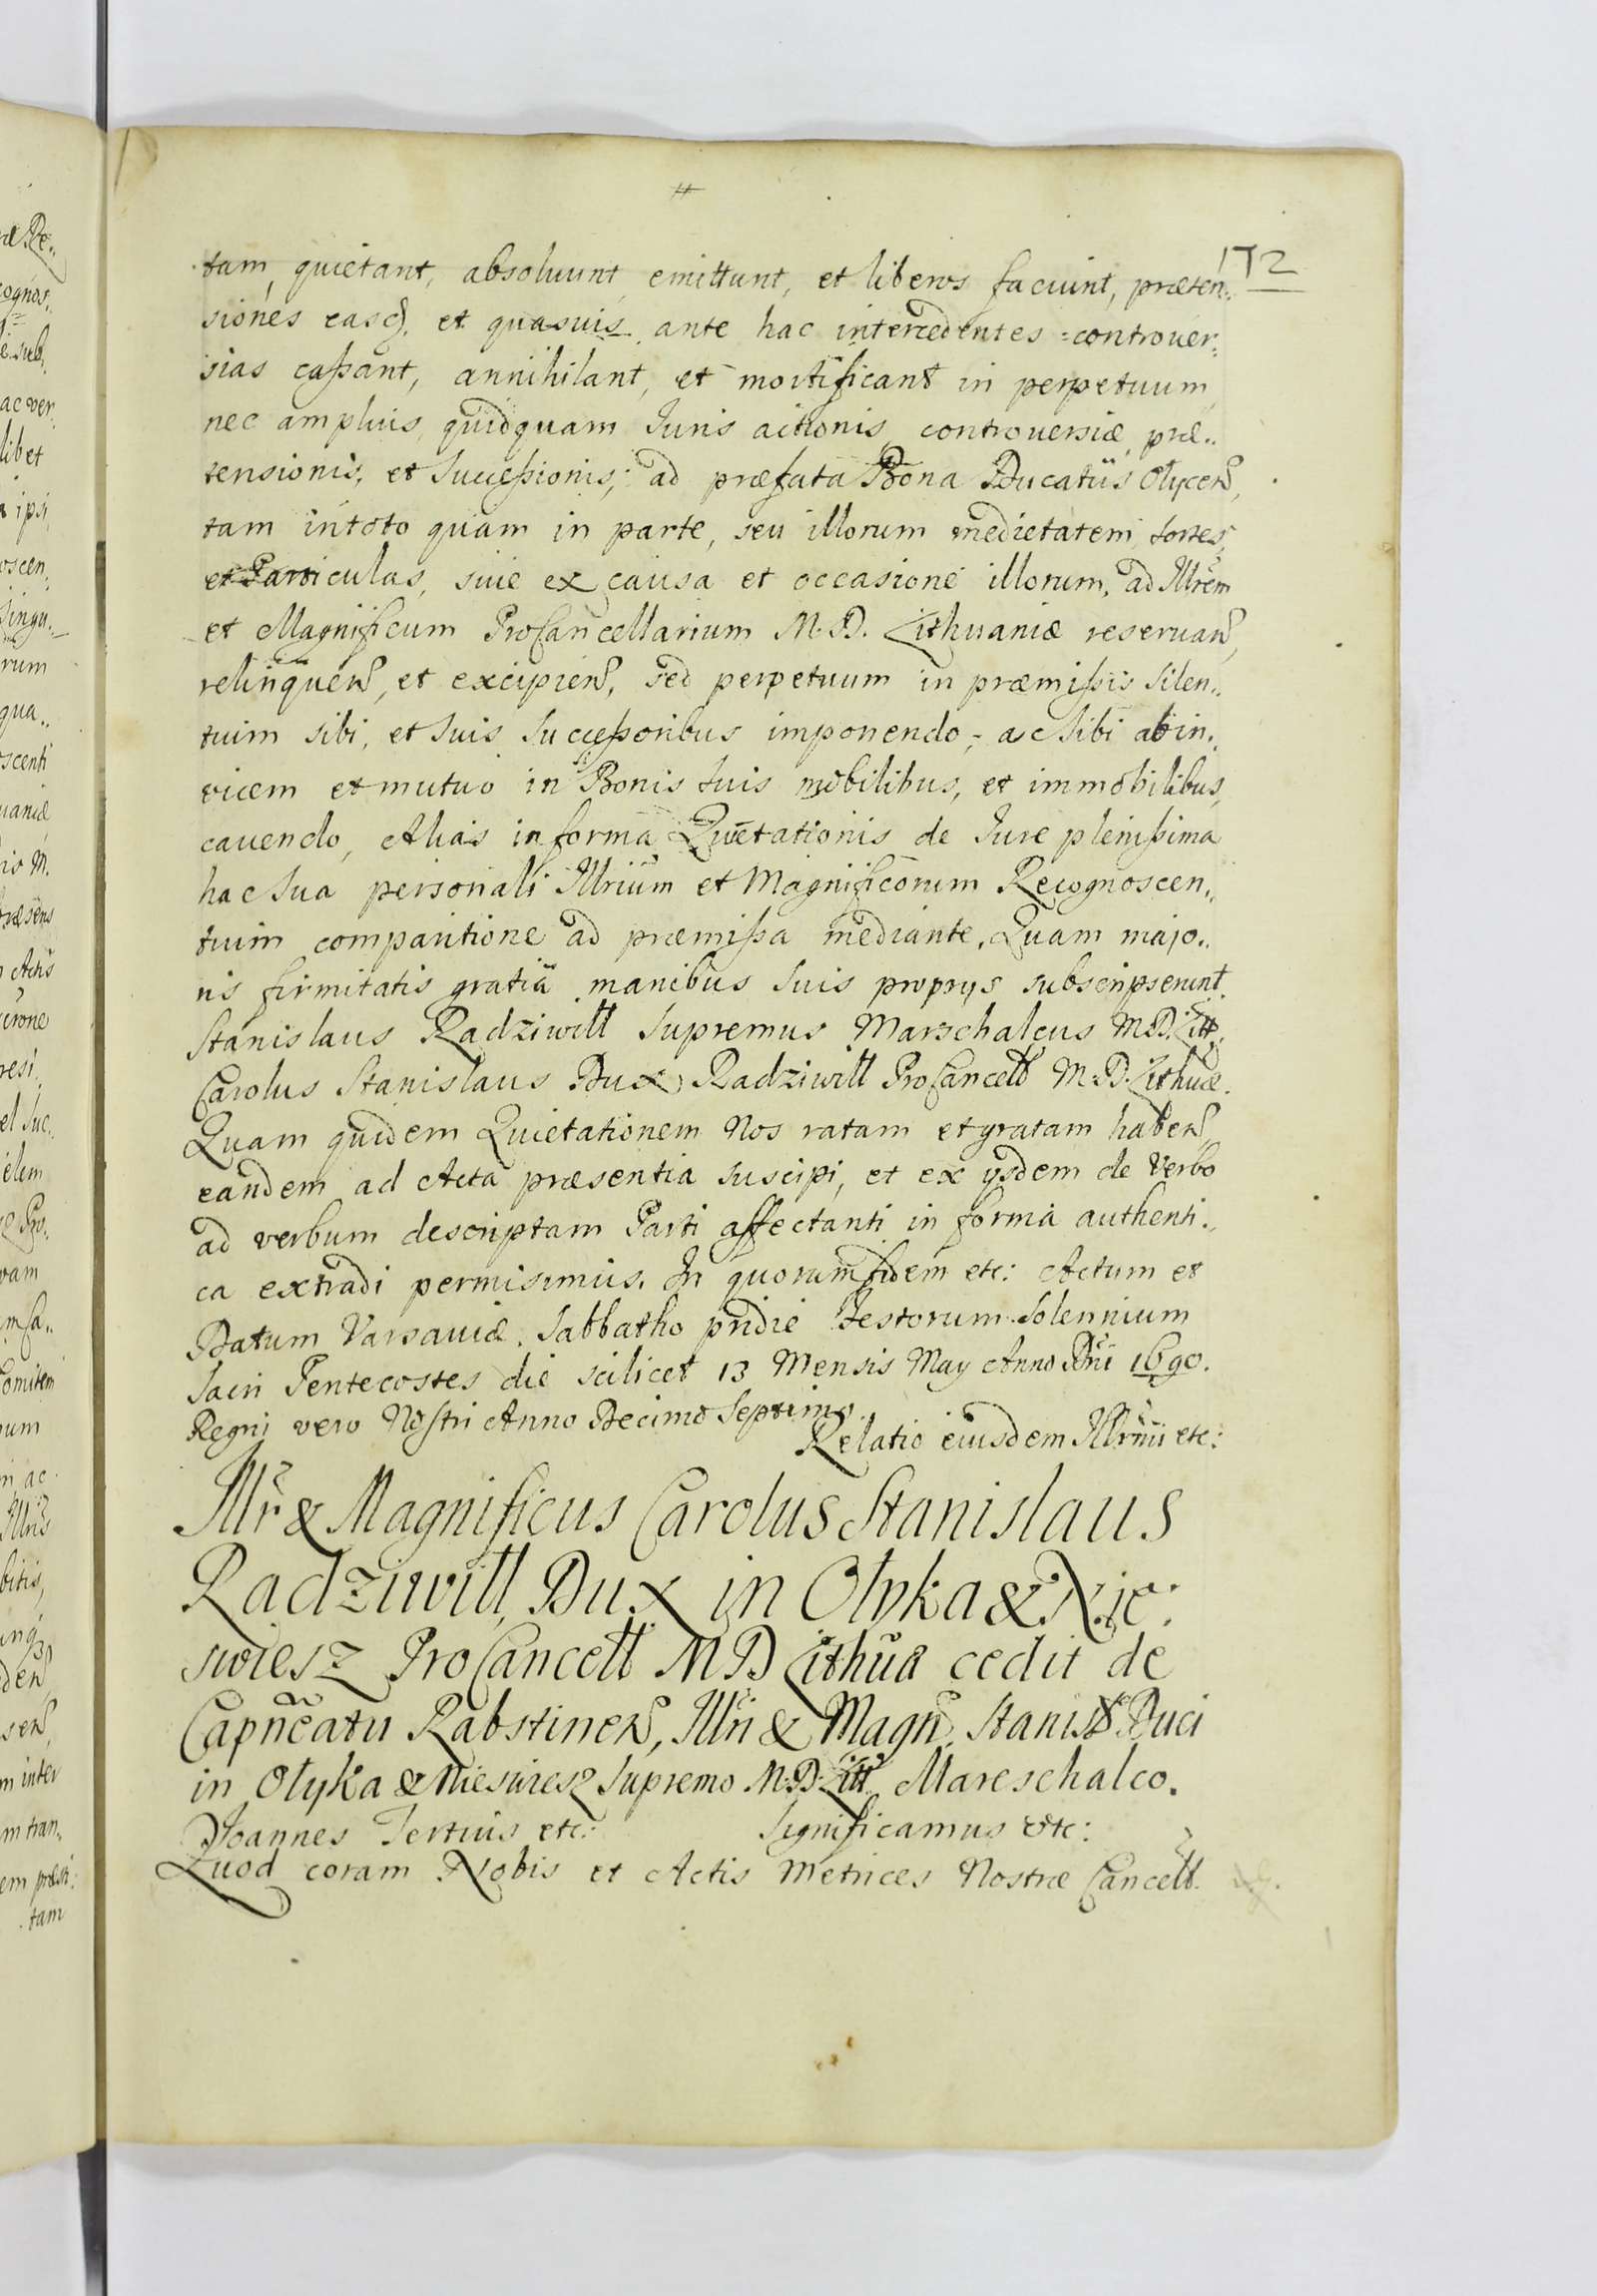 172
tam, quietant, absoluunt, emittunt, et liberos faciunt, præten..
siones easq, et quasuis ante hac intercedentes controuer..
sias cassant, annihilant, et mortificant in perpetuum,
nec amplius quidquam Iuris actionis, controuersiæ, præ..
tensionis, et Successionis, ad præfata Bona Ducatûs Olycen,
tam in toto quam in parte, seu illorum medietatem sortes,
et Particulas, siue ex causa et occasione illorum, ad Illrem
et Magnificum ProCancellarium M. D. Lithuaniæ reseruan,
relinquen, et excipien, sed perpetuum in præmissis silen..
tium sibi, et suis Successoribus imponendo, ac sibi ab in..
vicem et mutuo in Bonis suis mobilibus, et immobilibus,
cauendo, Alias in forma Quietationis de Iure plenissima
hac sua personali Illrium et Magnificorum Recognoscen..
tium comparitione ad præmissa mediante. Quam majo..
ris firmitatis gratiâ manibus suis proprijs subscripserunt.
Stanislaus Radziwill Supremus Marschalcus M.D. Litt.
Carolus Stanislaus Dux Radziwill ProCancell M.D. Lithuæ.
Quam quidem Quietationem Nos ratam et gratam haben,
eandem ad Acta præsentia suscipi, et ex ijsdem de Verbo
ad verbum descriptam Parti affectanti in forma authenti..
ca extradi permisimus. In quorum fidem etc: Actum et
Datum Varsauiæ. Sabbatho pridie Festorum Solennium
Sacri Pentecostes die scilicet 13 Mensis May Anno Dni 1690.
Regni vero Nostri Anno Decimo Septimo.
Relatio eiusdem Illrmi etc:
Illr & Magnificus Carolus Stanislaus
Radziwill, Dux in Olyka & Nie:
swiesz ProCancell M D Lithua cedit de
Capneatu Rabstinen, Illri & Magn. Stanisl Duci
in Olyka & Nieswiesz Supremo M.D. Litt Mareschalco.
Joannes Tertius etc: Significamus etc:
Quod coram Nobis et Actis Metrices Nostræ Cancell.